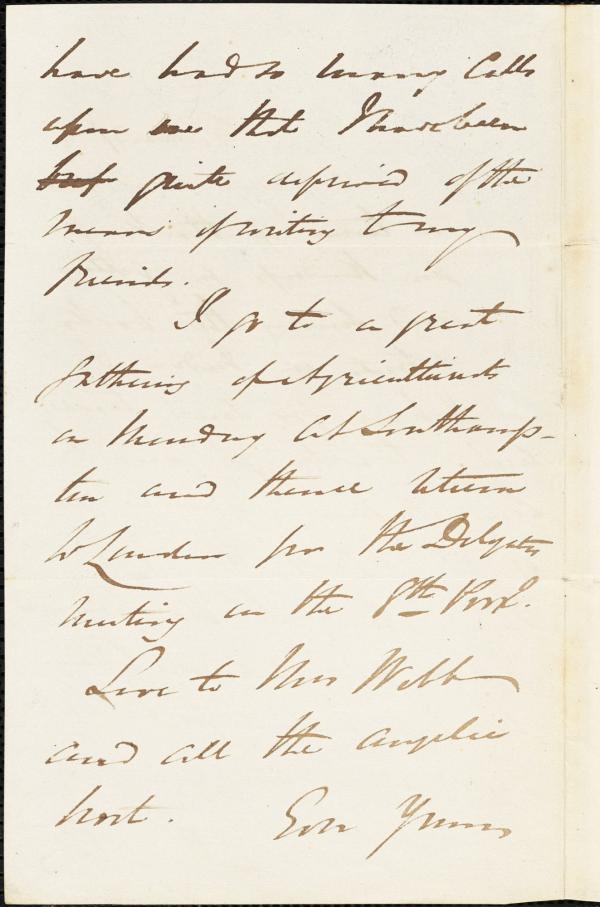 have had so many Calls
upon me that I have been
but quite deprived of the
means of writing to my
friends.
I go to a great
gathering of Agriculturists
on Monday at Southamp-
ton and thence return
to London for the Delegates
meeting on the 8th Prox.
Love to Mrs Webb
and all the angelic
host. Ever Yours